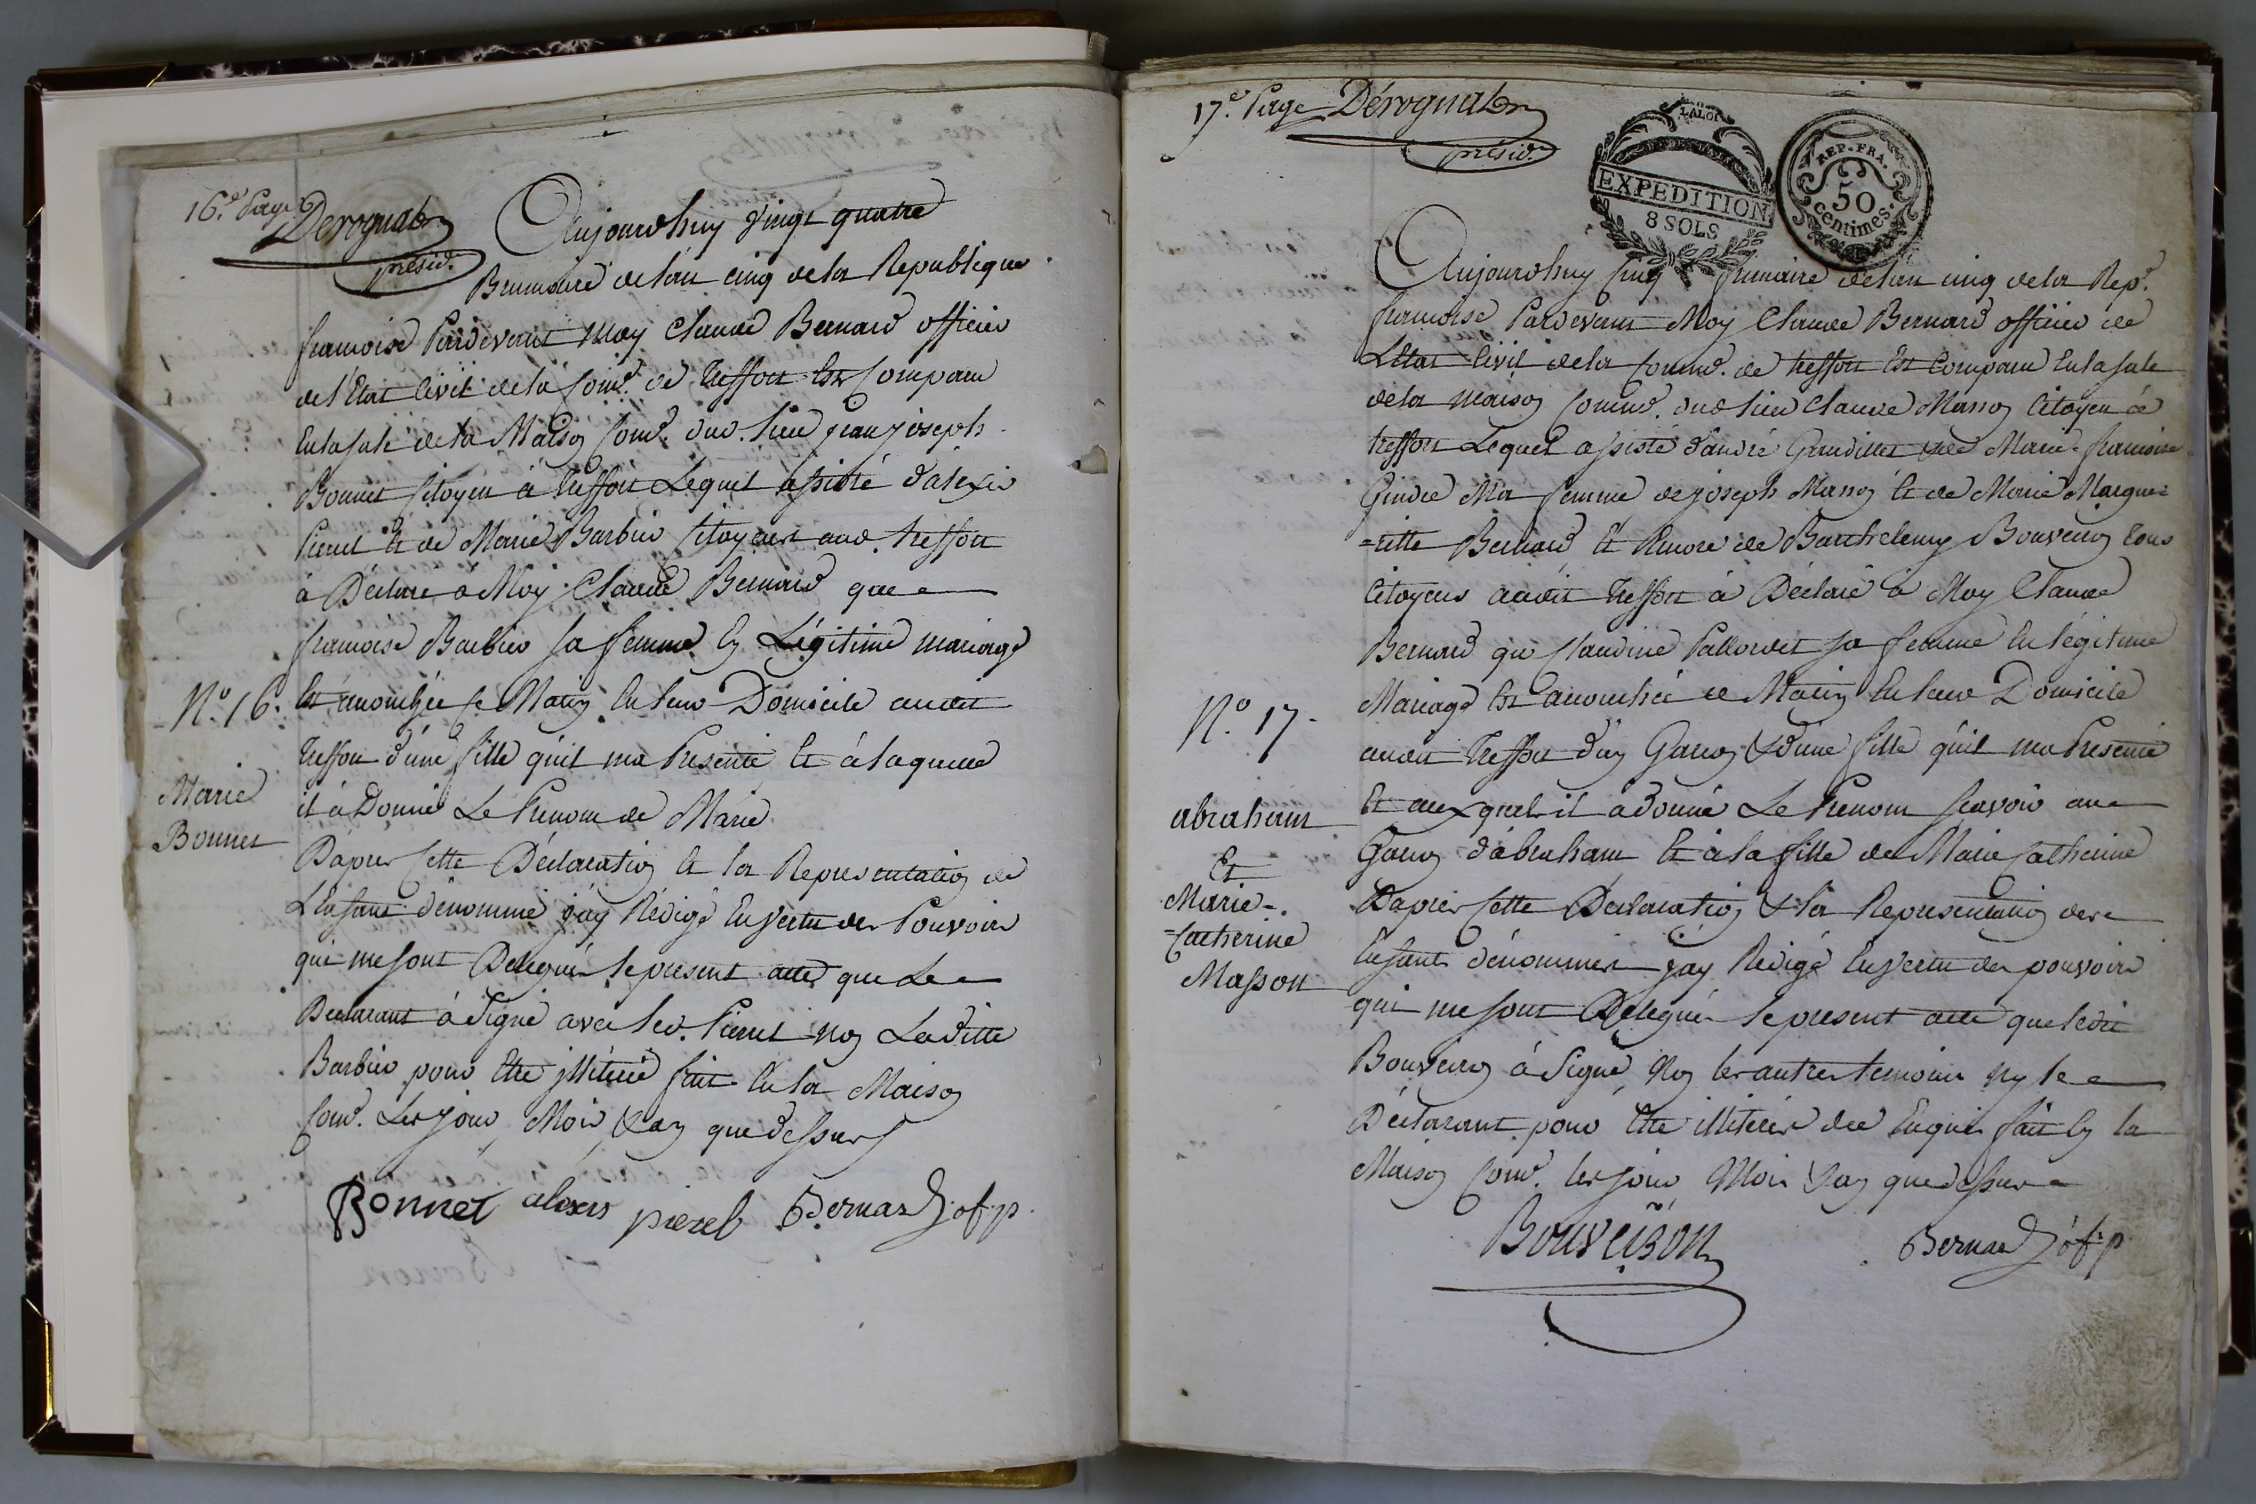 16.e Page Derognat
présid.t
Aujourdhuy vingt quatre
Brumaire de lan cinq de la Republique
francoise Pardevant moy Claude Bernard officier
de l'Etat Civil de la Com.e de treffort Est Comparu
En la sale de la Maison Com.e dud. lieu jean joseph
Bonnet Citoyen à treffort Lequel assisté d'alexis
Pierrel Et de Marie Barbier Citoyens aud. treffort
à Déclaré à Moy Claude Bernard que
francoise Barbier sa femme En Légitime mariage
N.o 16.
Est accouchée ce Matin En leur Domicile audit
treffort d'une fille quil ma Presenté Et à laquelle
Marie
Bonnet
il à Donné Le Prenom de Marie
Dapres Cette Déclaration Et la Representation de
L'Enfant dénommé jay Rédigé En vertu des Pouvoirs
qui me sont Delegués le present acte que Le
Declarant à Signé avec led. Pierrel Non Laditte
Barbier pour Etre illitérée fait En la Maison
Com.e Les jour, Mois, & an que dessus
Bonnet alexis pierel Bernard of. p.
17.e Page Dérognat
présid.t
LA LOI
EXPEDITION
8 SOLS
REP. FRA.
50
centimes.
Aujourdhuy Cinq frimaire de lan cinq de la Rep.e
francoise Pardevant Moy Claude Bernard officier de
L'Etat Civil de la Comm.e de treffort Est Comparu En la sale
de la Maison Comm.e dud. lieu Claude Masson Citoyen à
treffort Lequel assisté d'andré Gaudillet & de Marie francoise
Gindre Ma femme de joseph Masson Et de Marie Margue=
=ritte Bernard Et Encore de Barthelemy Bouveiron tous
Citoyens audit treffort à Déclaré à Moy Claude
Bernard que Claudine Pallordet sa femme En légitime
N.o 17.
Mariage Est accouchée ce Matin En leur Domicile
audit treffort d'un Garcon & d'une fille quil ma Presenté
abraham
Et
Marie-
=Catherine
Masson
Et auxquels il à donné Le Prenom scavoir au
Garcon d'abraham Et à la fille de Marie Catherine
Dapres Cette Déclaration & la Representation des
Enfants dénommés jay Rédigé En vertu des pouvoirs
qui me sont Delegués le present acte que ledit
Bouveiron à Signé, Non les autres temoins ny le
Déclarant pour Etre illitérés de Enquis fait En la
Maison Com.e les jour Mois & an que dessus
Bouveiron Bernard of. p.